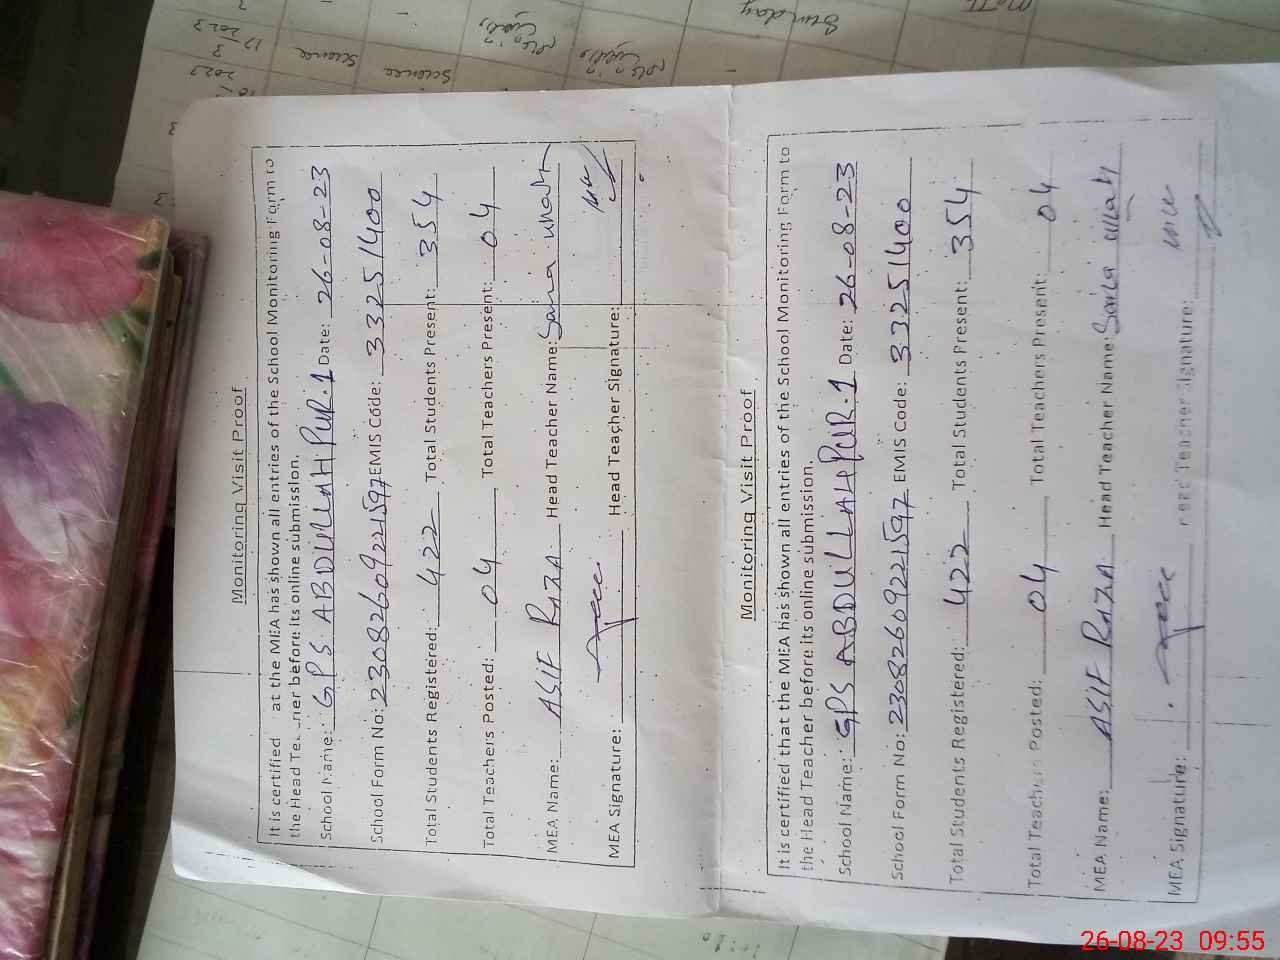 Monitoring Visit Proof
It is certified at the MEA has shown all entries of the School Monitoring Form to
the Head before its online submission.
School Name: GPS ABDULLAH PUR.1 Date: 26-08-23
School Form No: 23082609221597 EMIS Code: 33251400
Total Students Registered: 422 Total Students Present: 354
Total Teachers Posted: 04 Total Teachers Present: 04
MEA Name: ASIF RAZA Head Teacher Name:
MEA Signature: Head Teacher Signature:
Monitoring Visit Proof
It is certified that the MEA has shown all entries of the School Monitoring Form to
the Head Teacher before its online submission.
School Name: GPS ABDULLAH PUR.1 Date: 26-08-23
School Form No: 23082609221597 EMIS Code: 33251400
Total Students Registered: 422 Total Students Present: 354
Total Teachers Posted: 04 Total Teachers Present: 04
MEA Name: ASIF RAZA Head Teacher Name:
MEA Signature: Head Teacher Signature:
Sunday
Science
Science
17
3
2023
2023
26-08-23 09:55